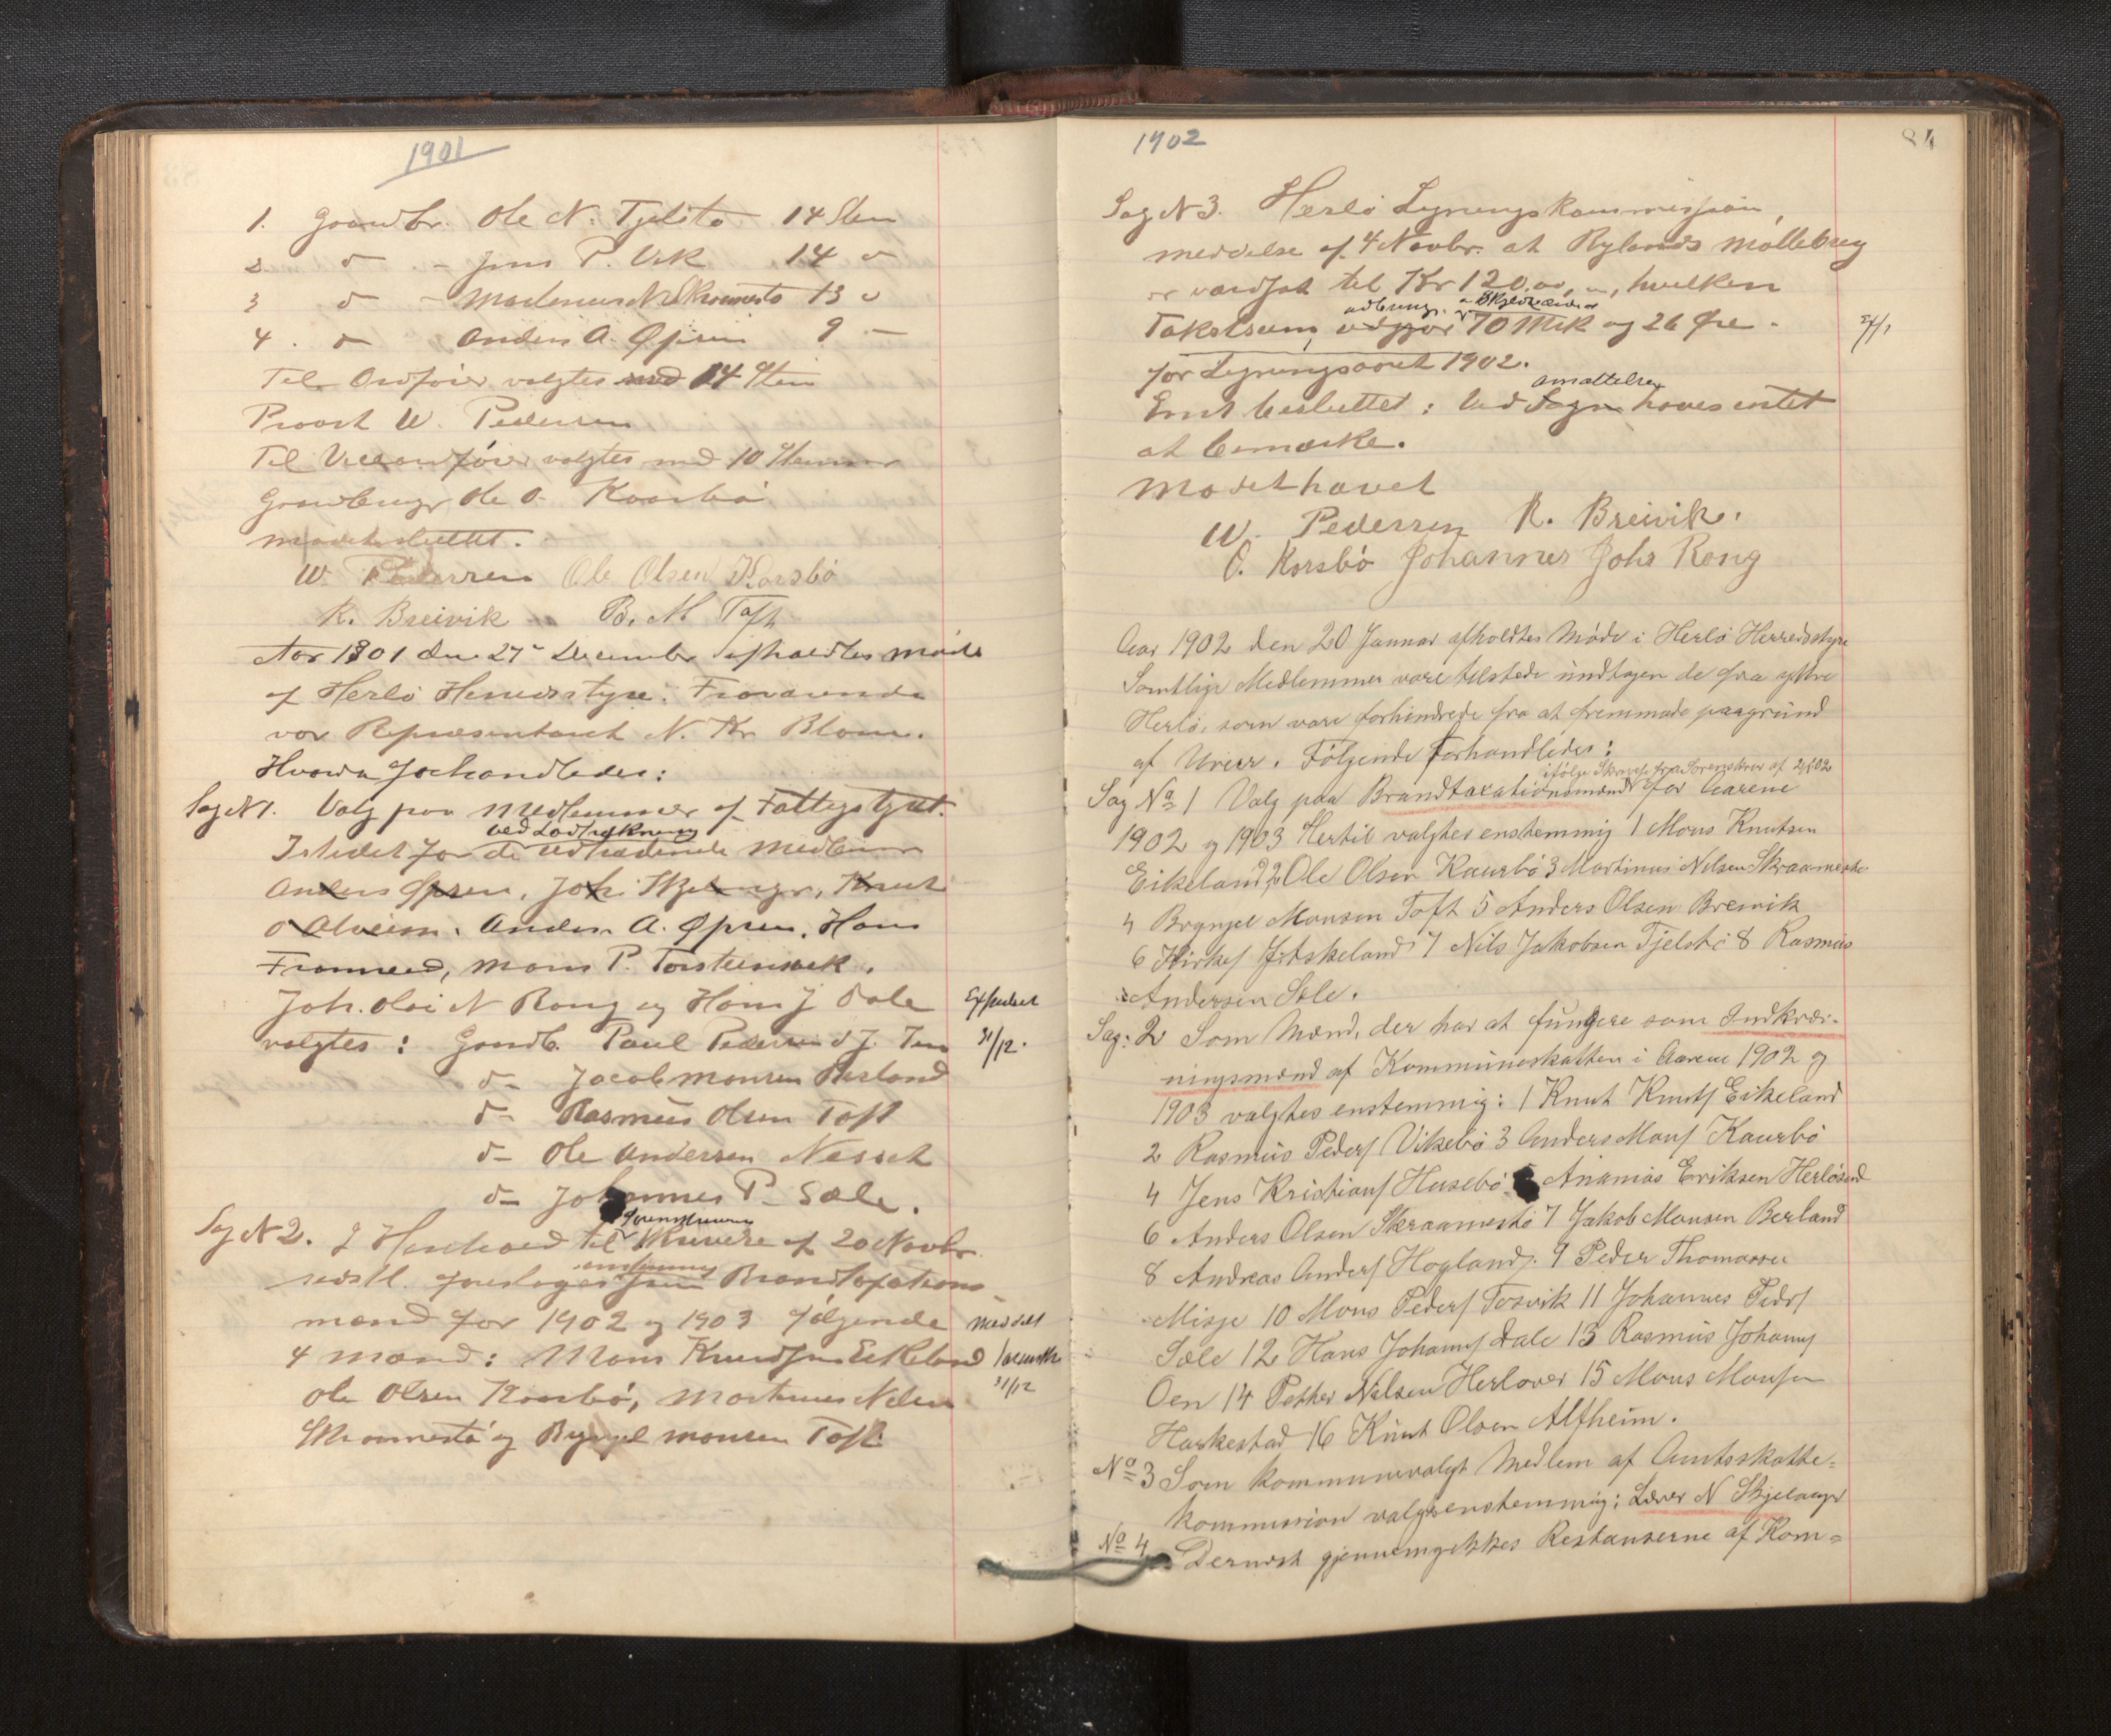 1901
1. Gaardbr. Ole N. Tjelstø 14 Stem
2. d - Jens P. Vik 14 d
3 d - Martinus N. Skraamestø 13 d
4. d Anders A. Øpsen 9 -
Til Ordfører valgtes med 14 Stem
Provst W. Pedersen
Til Viceordfører valgtes med 10 Stemmer
Gaardbruger Ole O. Kaarsbø
Mødet sluttet.
W. Pedersen Ole Olsen Korsbø
R. Breivik B. M. Toft
Aar 1901 den 27de December afholdtes møde
af Herlø Herredsstyre. Fraværende
var Repræsentant N. Kr. Blom.
Hvorda forhandledes:
Sag N 1. Valg paa Medlemmer af Fattigstyret.
ved Lodtrækning
Istedet for de udtrædende Medlemmer
Anders Øpsen, Joh. Skjelanger, Knut
O Alveim. Anders A. Øpsen, Hans
Fromreid, Mons P. Torsteinsvik.
Joh. Olai N Rong og Hans J Dale
Expederet
31/12.
valgtes: Gaardb. Paul Pedersen
d- Jacob Monsen Berland
d- Rasmus Olsen Toft
d- Ole Andersen Nesset
d- Johannes P. Sæle.
Sag N 2. I Henhold til Skrivelse af 20 Novbr.
sidstl. foreslages enstemmig Brandtaxations
mænd for 1902 og 1903 følgende
Meddelt
4 mænd: Mons Knudsen Eikeland
31/12
Ole Olsen Kaarsbø, Martinus Nilsen
Skraamestø og Brynjel Monsen Toft
1902
84
Sag N 3. Herlø Ligningskommission,
meddelse af 4 Novbr. at Rylands Møllebrug
er værdsat til Kr 120,00, hvilken
udbring. a Skyldværdi
Takstsum, udgjør 70 Mrk og 26 Øre.
for Ligningsaaret 1902.
ansættelsen
Enst besluttet: Ved Sagen haves intet
at bemærke.
Mødet hævet
W. Pedersen R. Breivik.
O. Korsbø Johannes Johs Rong
Aar 1902 den 20 Januar afholdtes Møde i Herlø Herredsstyre
Samtlige Medlemmer vare tilstede undtagen de fra ytre
Herlø, som vare forhindrede fra at fremmøde paagrund
af Uveir. Følgende Forhandledes:
ifølge Skrivelse fra Sorenskriver af 2/1 02
Sag No 1 Valg paa Brandtaxationsmænd for Aarene
1902 og 1903 Hertil valgtes enstemmig 1 Mons Knutsen
Eikeland, 2 Ole Olsen Kaursbø 3 Martinus Nilsen Skraamestø
4 Brynjel Monsen Toft 5 Anders Olsen Breivik
6 Eskeland 7 Nils Jakobsen Tjelstø 8 Rasmus
Andersen Sæle.
Sag: 2 Som Mænd, der har at fungere som Indkræv-
ningsmænd af Kommuneskatten i Aarene 1902 og
1903 valgtes enstemmig: 1 Knut Knuts Eikeland
2 Rasmus Peders Vikebø 3 Anders Mons Kaursbø
4 Jens Kristians Husebø 5 Ananias Eriksen Herløsund
6 Anders Olsen Skraamestø 7 Jakob Monsen Berland
8 Andreas Anders Hogland. 9 Peder Thomassen
Misje 10 Mons Peders Tosvik 11 Johannes Peders
Sæle 12 Hans Johans Dale 13 Rasmus Johans
Oen 14 Petter Nilsen Herløver 15 Mons Monsen
Harkestad 16 Knut Olsen Alfheim.
No 3 Som kommunevalgt Medlem af Amtsskatte-
kommission valgtes enstemmig: Lærer N Skjelanger
No 4 Dernæst gjennemgikkes Restanserne af Kom-